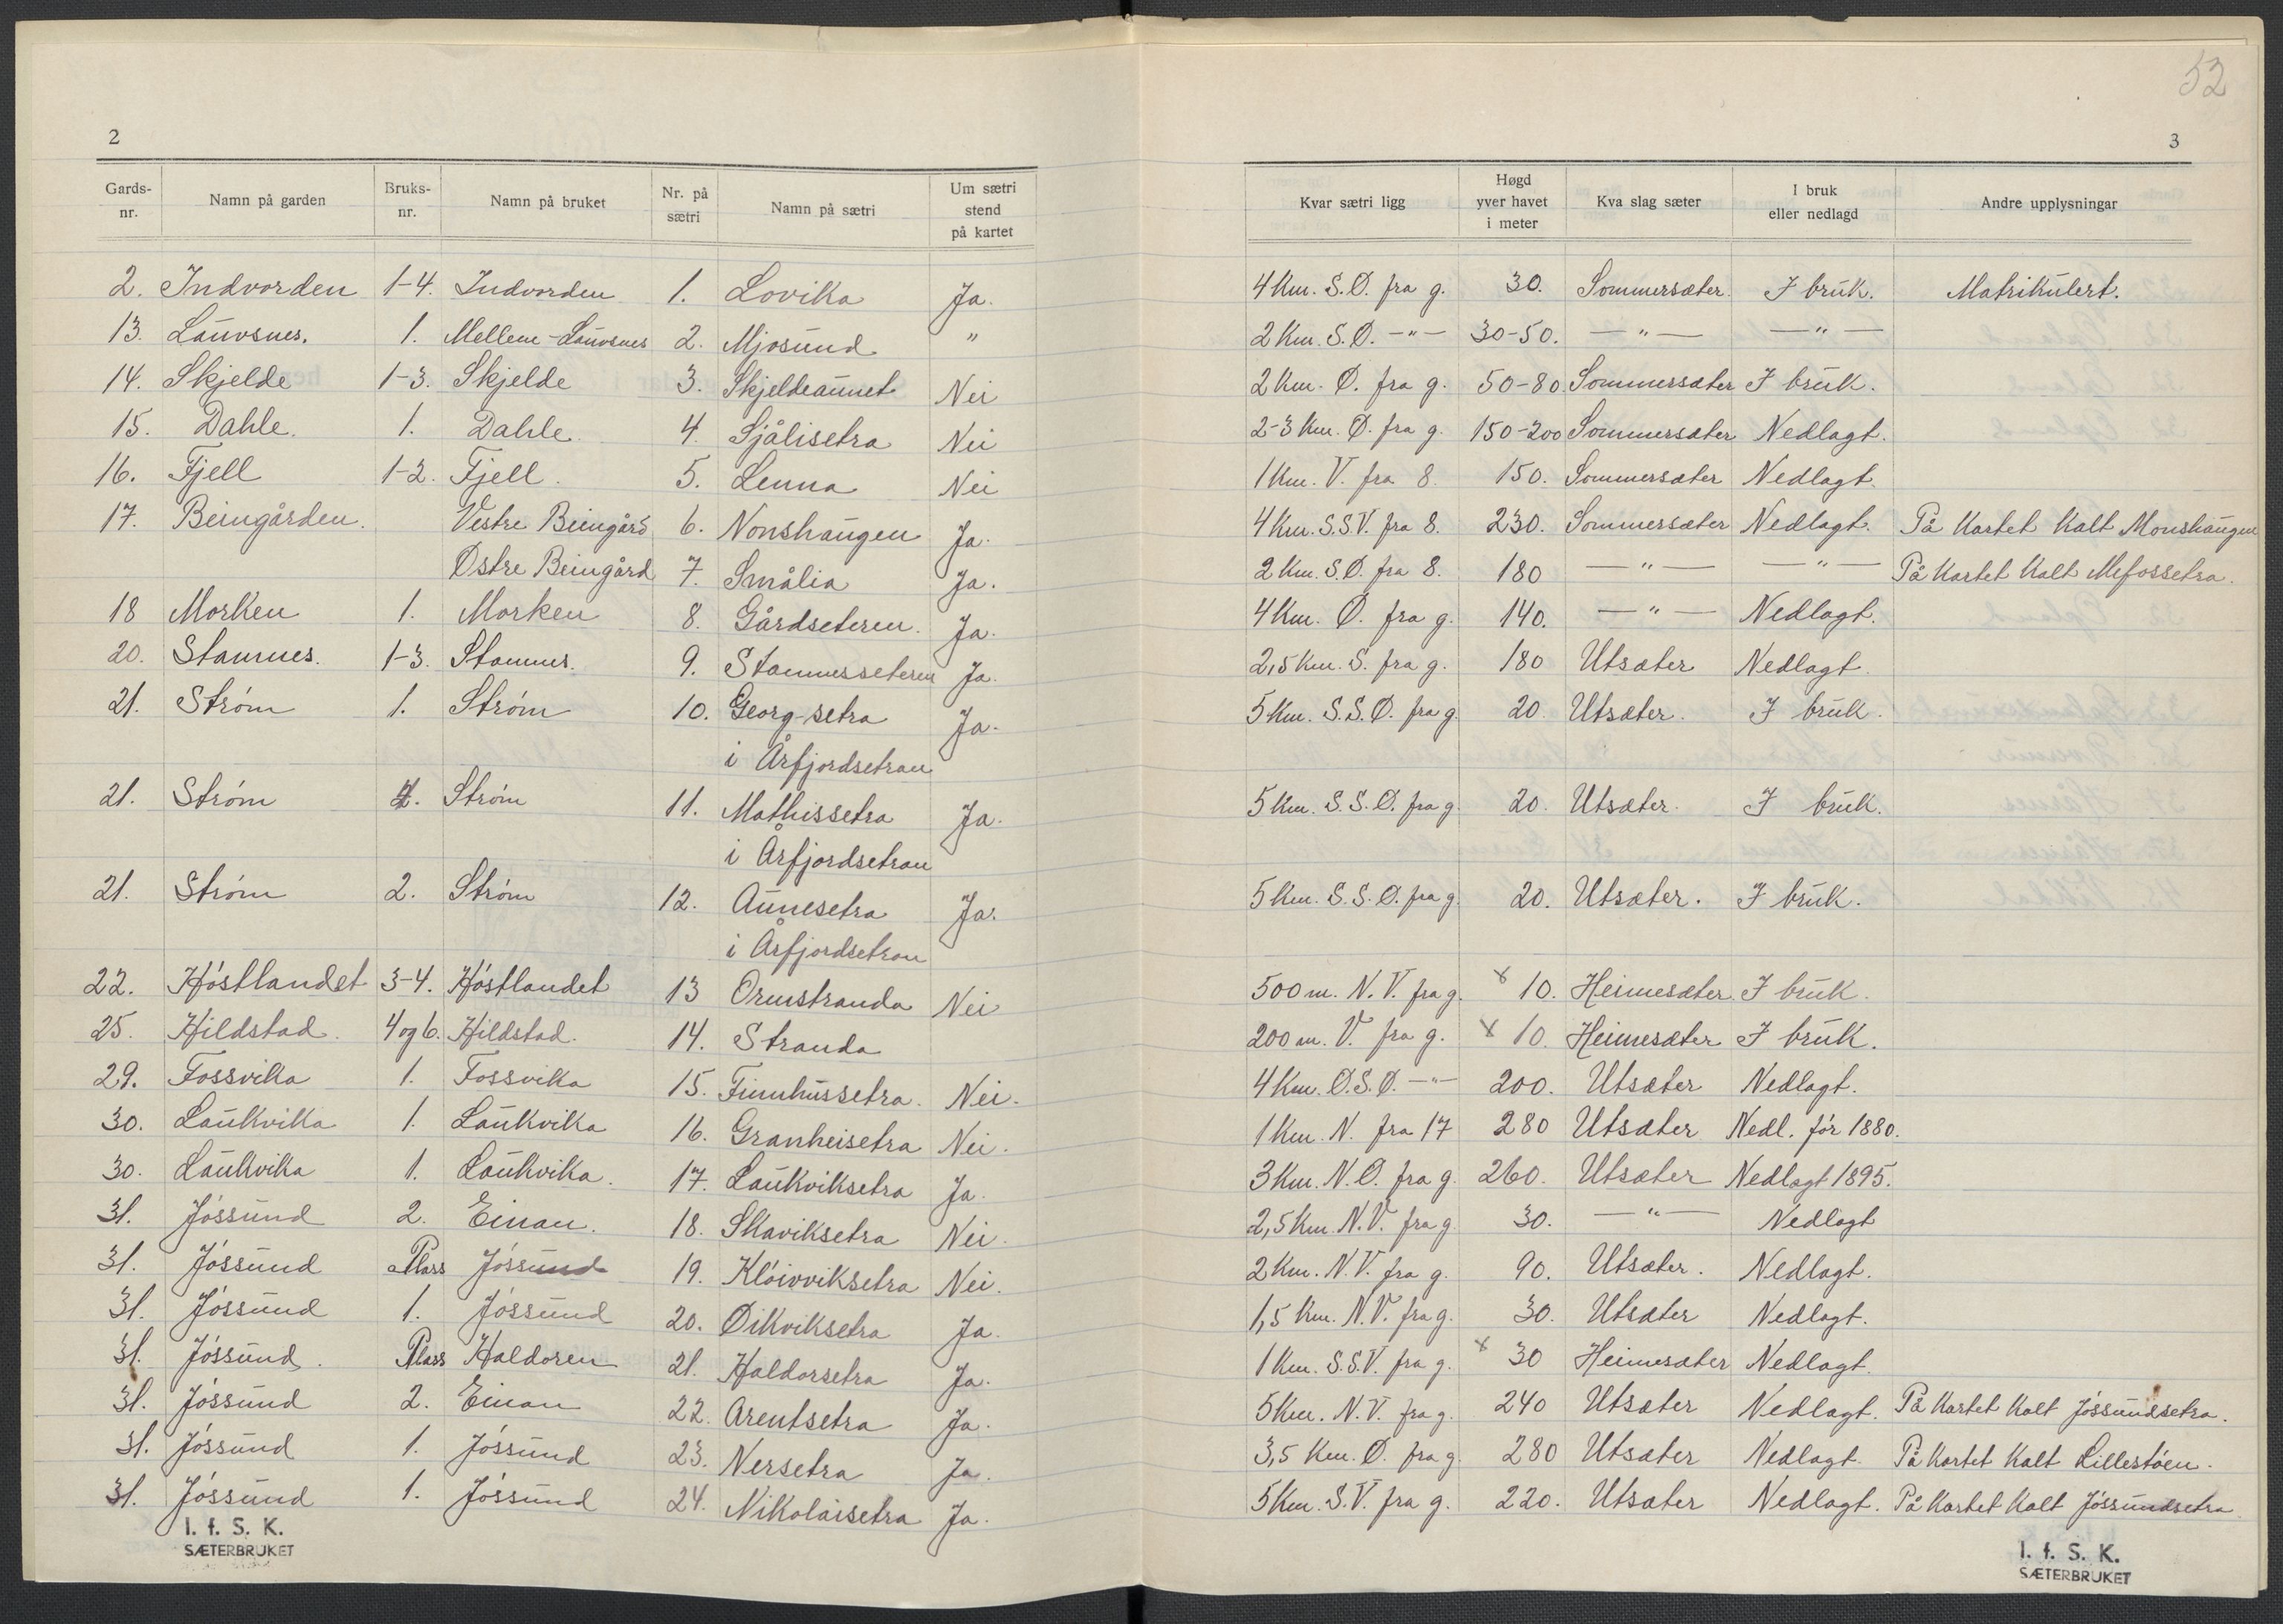 52
2
3
Gards-nr. Namn på garden Bruks-nr. Namn på bruket Nr. på sætri Namn på sætri Um sætri stend på kartet Kvar sætri ligg Høgd yver havet i meter Kva slag sæter I bruk eller nedlagd Andre upplysningar
2. Indvorden 1-4. Indvorden 1. Lovika Ja. 4 Km. S.Ø. fra g. 30. Sommersæter. I bruk. Matrikulert.
13. Lauvsnes. 1. Mellem-Lauvsnes 2. Mjosund " 2 Km. S.Ø. -"- 30-50. -"- -"-
14. Skjelde 1-3. Skjelde 3. Skjeldeaunet Nei 2 Km. Ø. fra g. 50-80. Sommersæter I bruk.
15. Dahle. 1. Dahle. 4. Sjålisetra Nei 2-3 Km. Ø. fra g. 150-200 Sommersæter Nedlagt.
16. Fjell 1-2. Fjell. 5. Lenna Nei 1 Km. V. fra 8. 150. Sommersæter Nedlagt.
17. Beingården. Vestre Beingård 6. Nonshaugen Ja. 4 Km. S.S.V. fra 8. 230. Sommersæter Nedlagt. På Kartet Kalt Monshaugen
Østre Beingård 7. Smålia Ja. 2 Km. S.Ø. fra 8. 180 -"- -"- På Kartet Kalt Mefossetra.
18 Morken 1. Morken 8. Gårdseteren. Ja. 4 Km. Ø. fra g. 140. -"- Nedlagt.
20. Stamnes. 1-3. Stamnes. 9. Stamnesseteren Ja. 2,5 Km. S. fra g. 180 Utsæter Nedlagt.
21. Strøm 1. Strøm 10. Georg-setra Ja. 5 Km. S.S.Ø. fra g. 20. Utsæter. I bruk.
i Årfjordsetran
21. Strøm 4. Strøm 11. Mathissetra Ja. 5 Km. S.S.Ø. fra g. 20. Utsæter. I bruk.
i Årfjordsetran
21. Strøm 2. Strøm 12. Aunesetra Ja. 5 Km. S.S.Ø. fra g. 20. Utsæter. I bruk.
i Årfjordsetran
22. Høstlandet 3-4. Høstlandet 13 Ormstranda Nei 500 m. N.V. fra g. x 10. Heimesæter. I bruk.
25. Hildstad. 4 og 6. Hildstad. 14. Stranda 200 m. V. fra g. x 10. Heimesæter I bruk.
29. Fossvika 1. Fossvika 15. Finnhussetra. Nei. 4 Km. Ø.S.Ø. -"- 200. Utsæter Nedlagt.
30. Laukvika 1. Laukvika 16. Granheisetra Nei. 1 Km. N. fra 17 280 Utsæter Nedl. før 1880.
30. Laukvika 1. Laukvika. 17. Laukviksetra Ja. 3 Km. N.Ø. fra g. 260. Utsæter Nedlagt 1895.
31. Jøssund 2. Einan. 18. Skaviksetra Nei. 2,5 Km. N.V. fra g. 30. -"- Nedlagt
31. Jøssund Plass Jøssund 19. Kløivviksetra Nei. 2 Km. N.V. fra g. 90. Utsæter. Nedlagt.
31. Jøssund 1. Jøssund 20. Øikviksetra Ja. 1,5 Km. N.V. fra g. 30. Utsæter Nedlagt.
31. Jøssund. Plass Haldoren 21. Haldorsetra Ja. 1 Km. S.S.V. fra g. x 30 Heimesæter Nedlagt.
31. Jøssund 2. Einan 22. Arentsetra Ja. 5 Km. N.V. fra g. 240 Utsæter Nedlagt. På Kartet Kalt Jøssundsetra.
31. Jøssund 1. Jøssund 23. Nersetra Ja. 3,5 Km. Ø. fra g. 280 Utsæter Nedlagt. På Kartet Kalt Lillestøen.
31. Jøssund 1. Jøssund 24. Nikolaisetra Ja. 5 Km. S.V. fra g. 220. Utsæter Nedlagt. På Kartet Kalt Jøssundsetra.
I. f. S. K.
SÆTERBRUKET
I. f. S. K.
SÆTERBRUKET